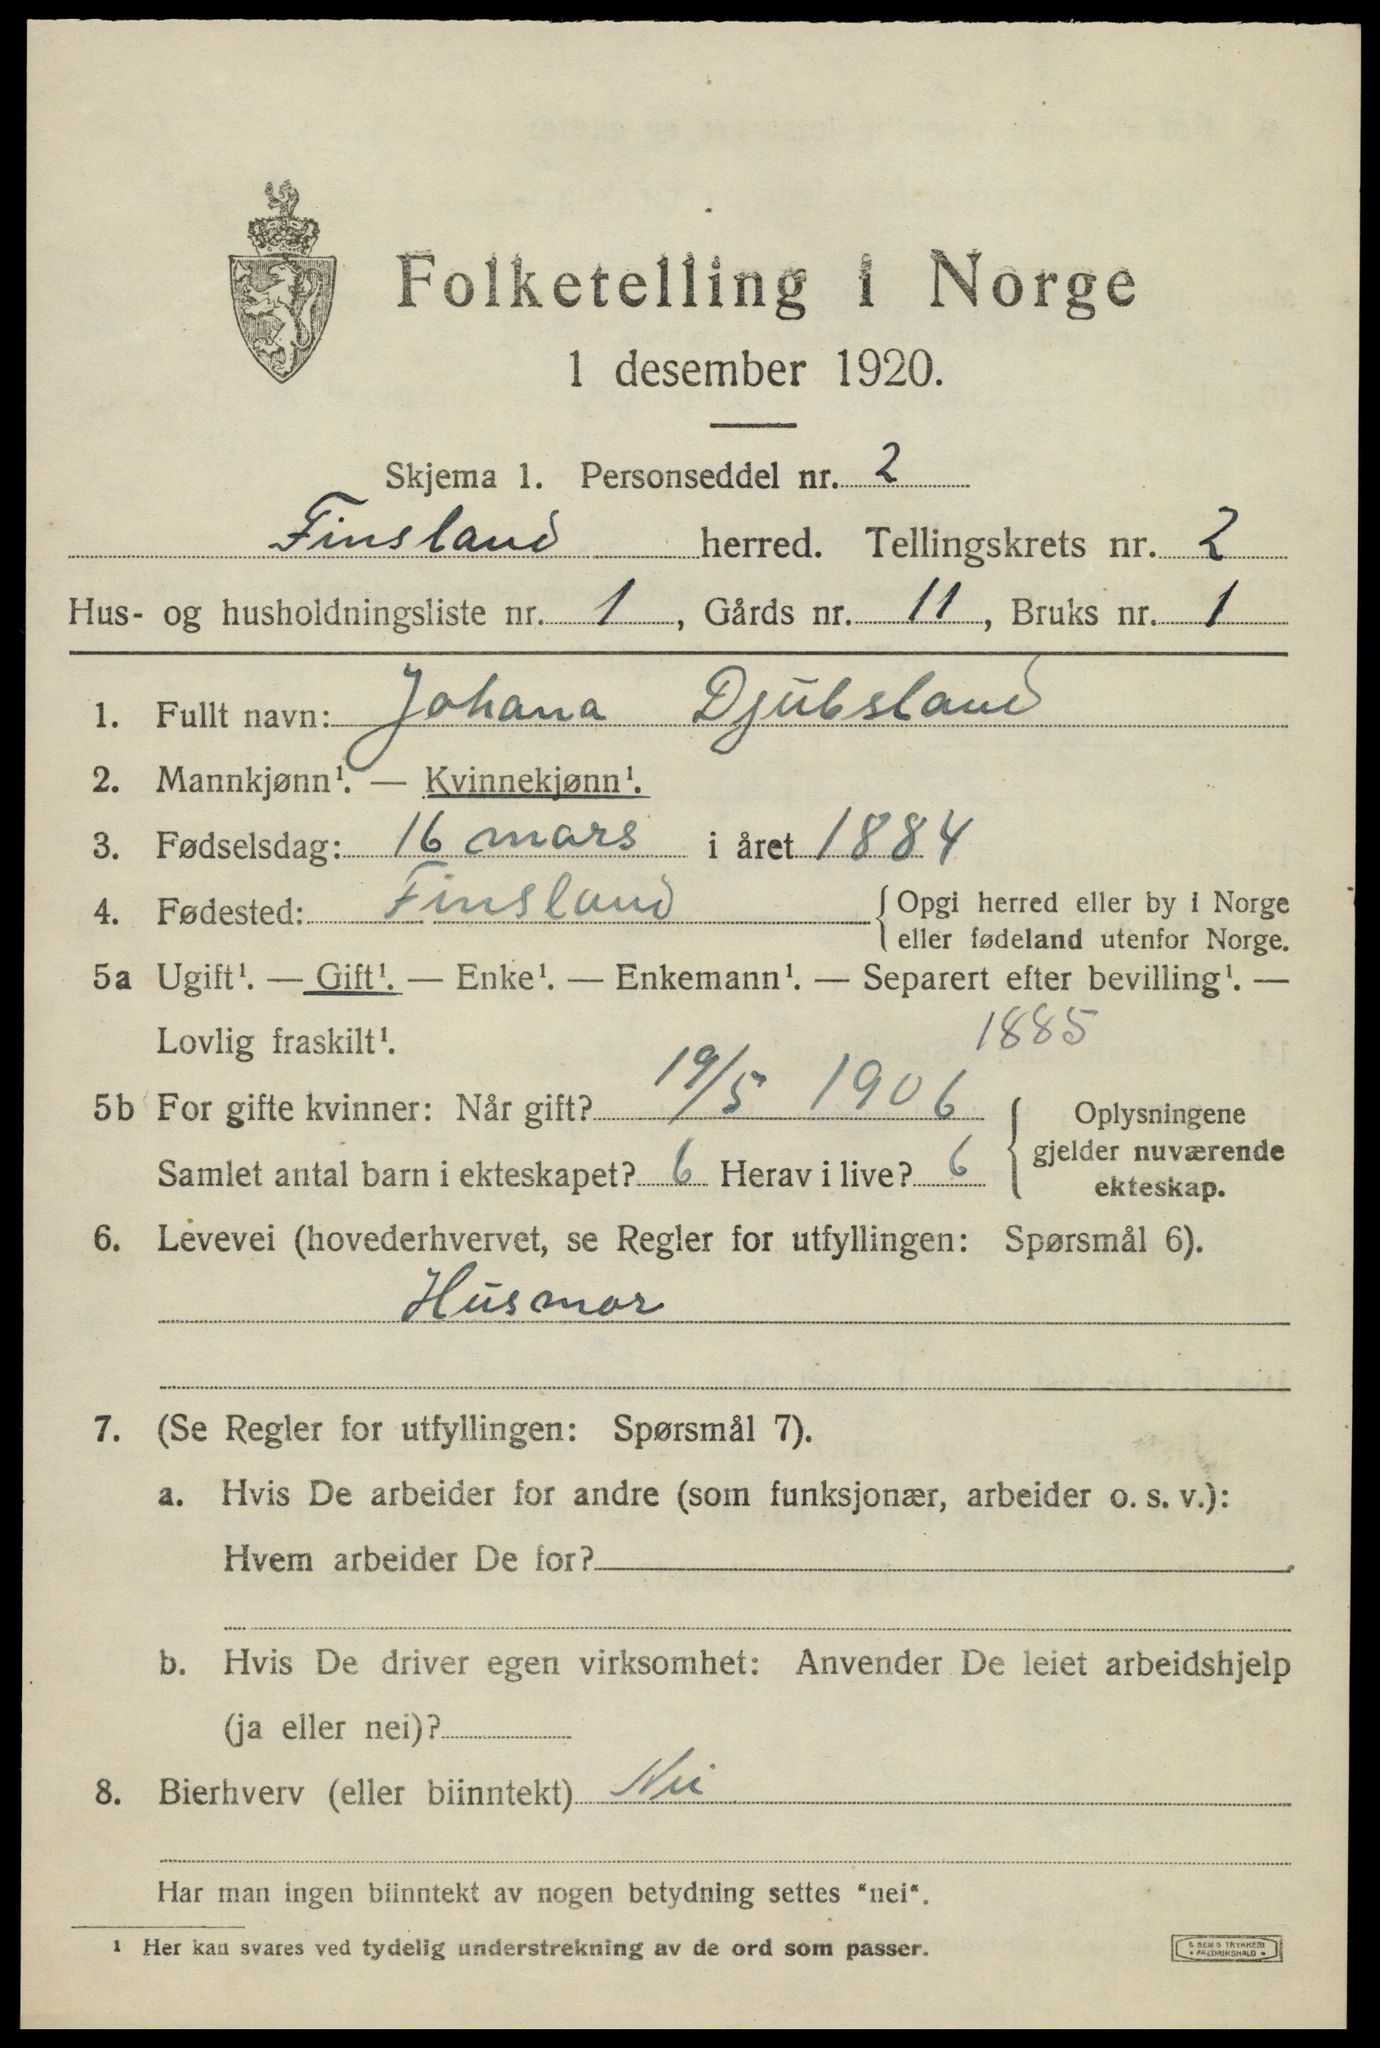 Folketelling i Norge
1 desember 1920.
Skjema 1. Personseddel nr. 2
Finsland herred. Tellingskrets nr. 2
Hus- og husholdningsliste nr. 1, Gårds nr. 11, Bruks nr. 1
1. Fullt navn: Johana Djubsland
2. Mannkjønn¹. — Kvinnekjønn¹.
3. Fødselsdag: 16 mars i året 1884
4. Fødested: Finsland { Opgi herred eller by i Norge
eller fødeland utenfor Norge.
5a Ugift¹. — Gift¹. — Enke¹. — Enkemann¹. — Separert efter bevilling¹. —
Lovlig fraskilt¹. 1885
5b For gifte kvinner: Når gift? 19/5 1906 { Oplysningene
gjelder nuværende
ekteskap.
Samlet antal barn i ekteskapet? 6 Herav i live? 6
6. Levevei (hovederhvervet, se Regler for utfyllingen: Spørsmål 6).
Husmor
7. (Se Regler for utfyllingen: Spørsmål 7).
a. Hvis De arbeider for andre (som funksjonær, arbeider o. s. v.):
Hvem arbeider De for?
b. Hvis De driver egen virksomhet: Anvender De leiet arbeidshjelp
(ja eller nei)?
8. Bierhverv (eller biinntekt) Nei
Har man ingen biinntekt av nogen betydning settes "nei".
¹ Her kan svares ved tydelig understrekning av de ord som passer.
E SEMS TRYKKERI
• FREDRIKSHALD •